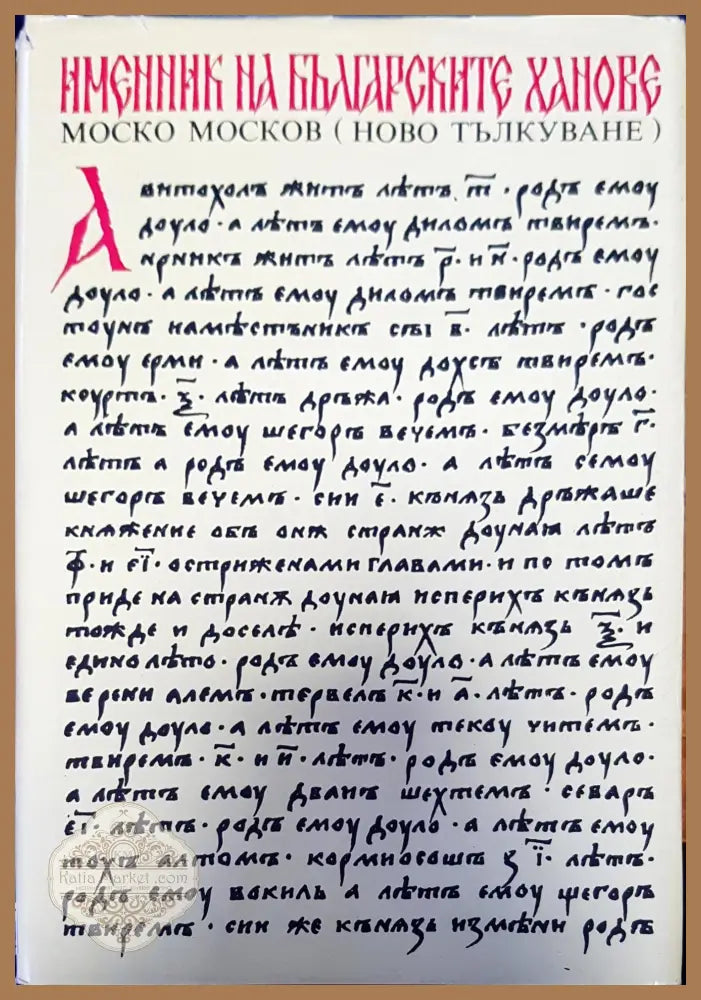 ИМЕННИК НА БЪЛГАРСКИТЕ ХАНОВЕ
МОСКО МОСКОВ ( НОВО ТЪЛКУВАНЕ )
Авитохолъ житъ лѣтъ т҃ · родъ емоу
доуло · а лѣтъ емоу диломъ твиремъ ·
ирникъ житъ лѣтъ р҃ · и и҃ · родъ емоу
доуло · а лѣтъ емоу диломъ твиремъ · гос
тоунъ намѣстьникъ сьі в҃ · лѣтъ · родъ
емоу ерми · а лѣтъ емоу дохсъ твиремъ ·
коуртъ · ѯ҃ · лѣтъ дръжа · родъ емоу доуло ·
а лѣтъ емоу шегоръ вечемъ · безмѣръ г҃ ·
лѣтъ а родъ емоу доуло · а лѣтъ семоу
шегоръ вечемъ · сии е҃ · кънязь дръжаше
княжение объ онѫ странѫ доуная лѣтъ
ф҃ · и еі҃ · остриженами главами · и по томъ
приде на странѫ доуная исперихъ кънязь
тожде и доселѣ · исперихъ кънязь ѯ҃ · и
едино лѣто · родъ емоу доуло · а лѣтъ емоу
верени алемъ · тервелъ к҃ · и а҃ · лѣтъ · родъ
емоу доуло · а лѣтъ емоу текоу читемъ ·
твиремъ · к҃ · и и҃ · лѣтъ · родъ емоу доуло ·
а лѣтъ емоу дванъ шехтемъ · севаръ
еі҃ · лѣтъ · родъ емоу доуло · а лѣтъ емоу
тохъ алтомъ · кормисошъ з і҃ · лѣтъ ·
родъ емоу вокиль а лѣтъ емоу шегоръ
твиремъ · сии же кънязь измѣни родъ
KatiaMarket.com